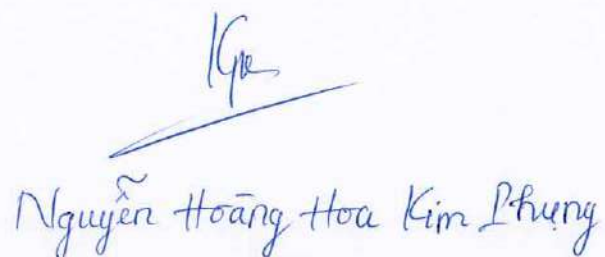 Nguyễn Hoàng Hoa Kim Phụng